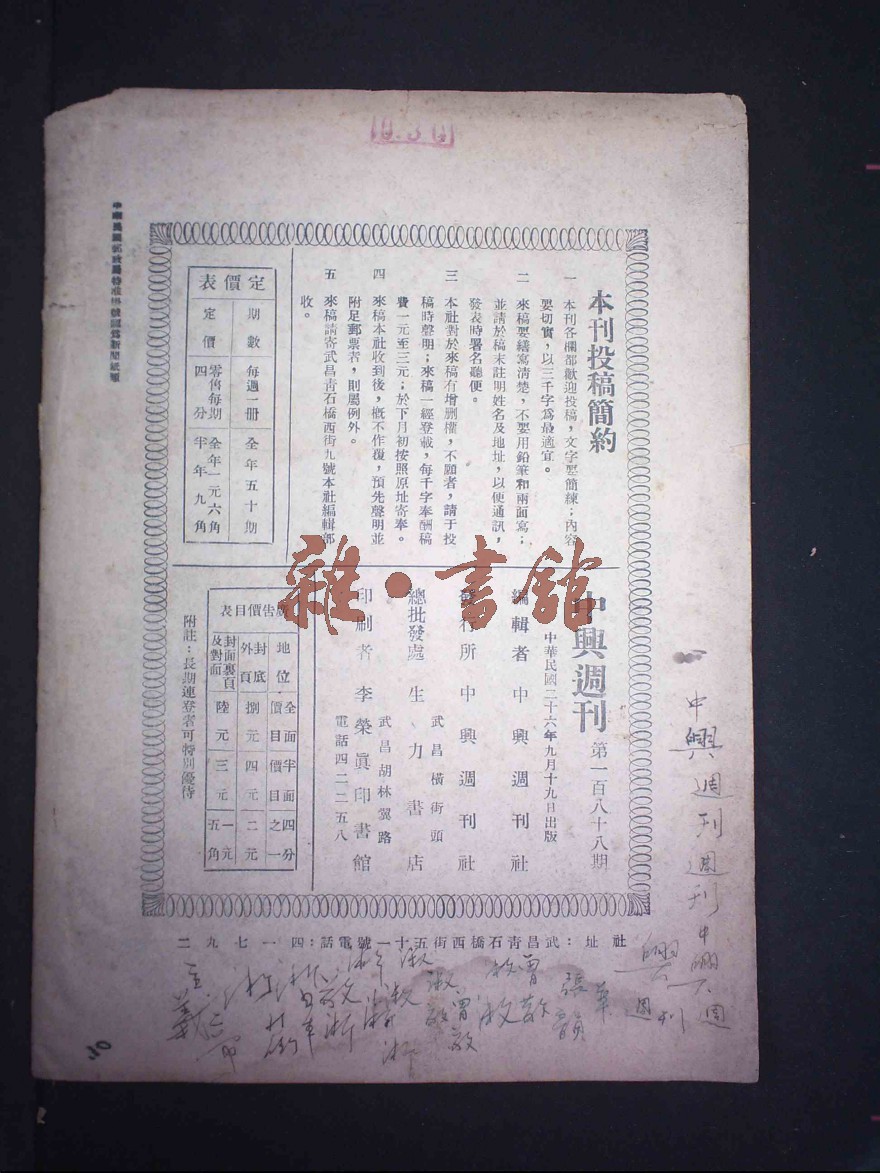 中華民國郵政局特准掛號認爲新聞紙類
本刊投稿簡約
一 本刊各欄都歡迎投稿，文字要簡練；內容
要切實，以三千字爲最適宜。
二 來稿要繕寫清楚，不要用鉛筆和兩面寫；
並請於稿末註明姓名及地址，以便通訊，
發表時署名聽便。
三 本社對於來稿有增删權，不願者，請于投
稿時聲明；來稿一經登載，每千字奉酬稿
費一元至三元；於下月初按照原址寄奉。
四 來稿本社收到後，概不作覆，預先聲明並
附足郵票者，則屬例外。
五 來稿請寄武昌青石橋西街九號本社編輯部
收。
定價表
期數 每週一册 全年五十期
定價 零售每期四分 全年一元六角 半年九角
中興週刊 第一百八十八期
中華民國二十六年九月十九日出版
編輯者 中興週刊社
發行所 中興週刊社
總批發處 生力書店
武昌橫街頭
印刷者 李榮眞印書館
武昌胡林翼路
電話四二二五八
廣告價目表
地位 全面價目 半面價目 四分之一
封底外頁 捌元 四元 二元
封面裏頁及對面 陸元 三元 一元五角
附註：長期連登者可特別優待
社址：武昌青石橋西街五十一號電話：四一七九二
雜·書館
中興週刊週刊